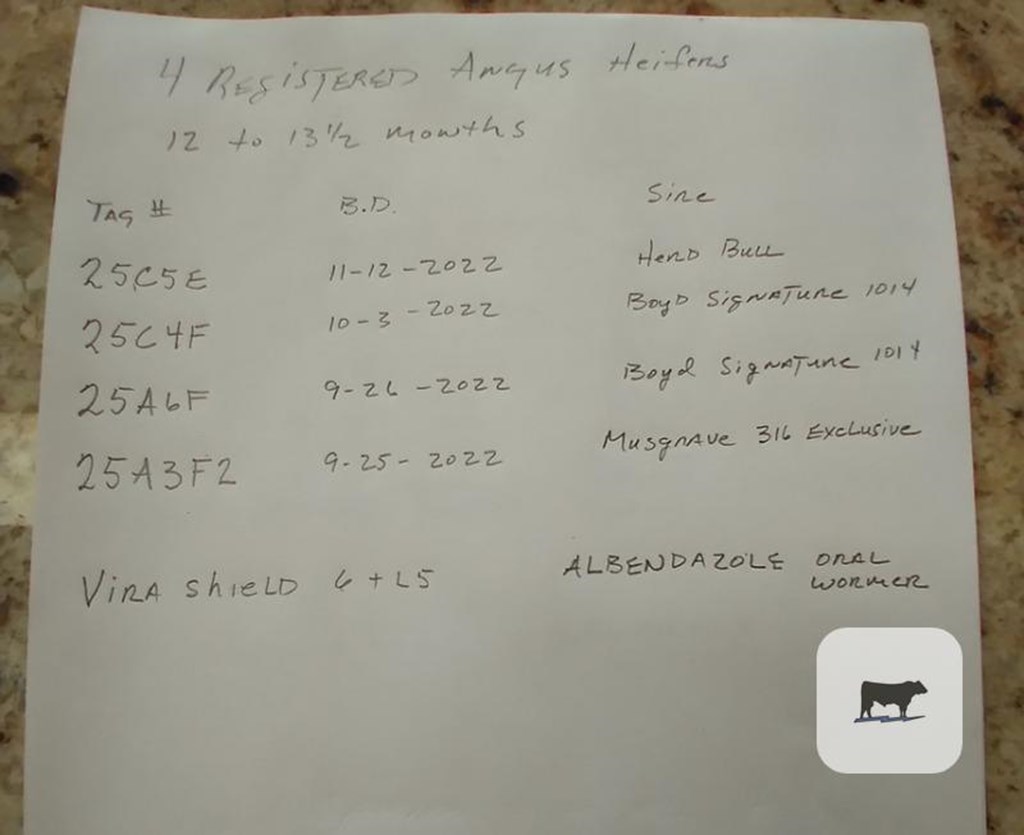 4 REGISTERED ANGUS Heifers
12 to 13 1/2 months
TAG # B.D. Sire
25C5E 11-12-2022 HERD BULL
25C4F 10-3-2022 BOYD SIGNATURE 1014
25A6F 9-26-2022 Boyd SIGNATURE 1014
25A3F2 9-25-2022 MUSGRAVE 316 EXCLUSIVE
VIRA shIELD 6 + L5 ALBENDAZOLE ORAL
WORMER